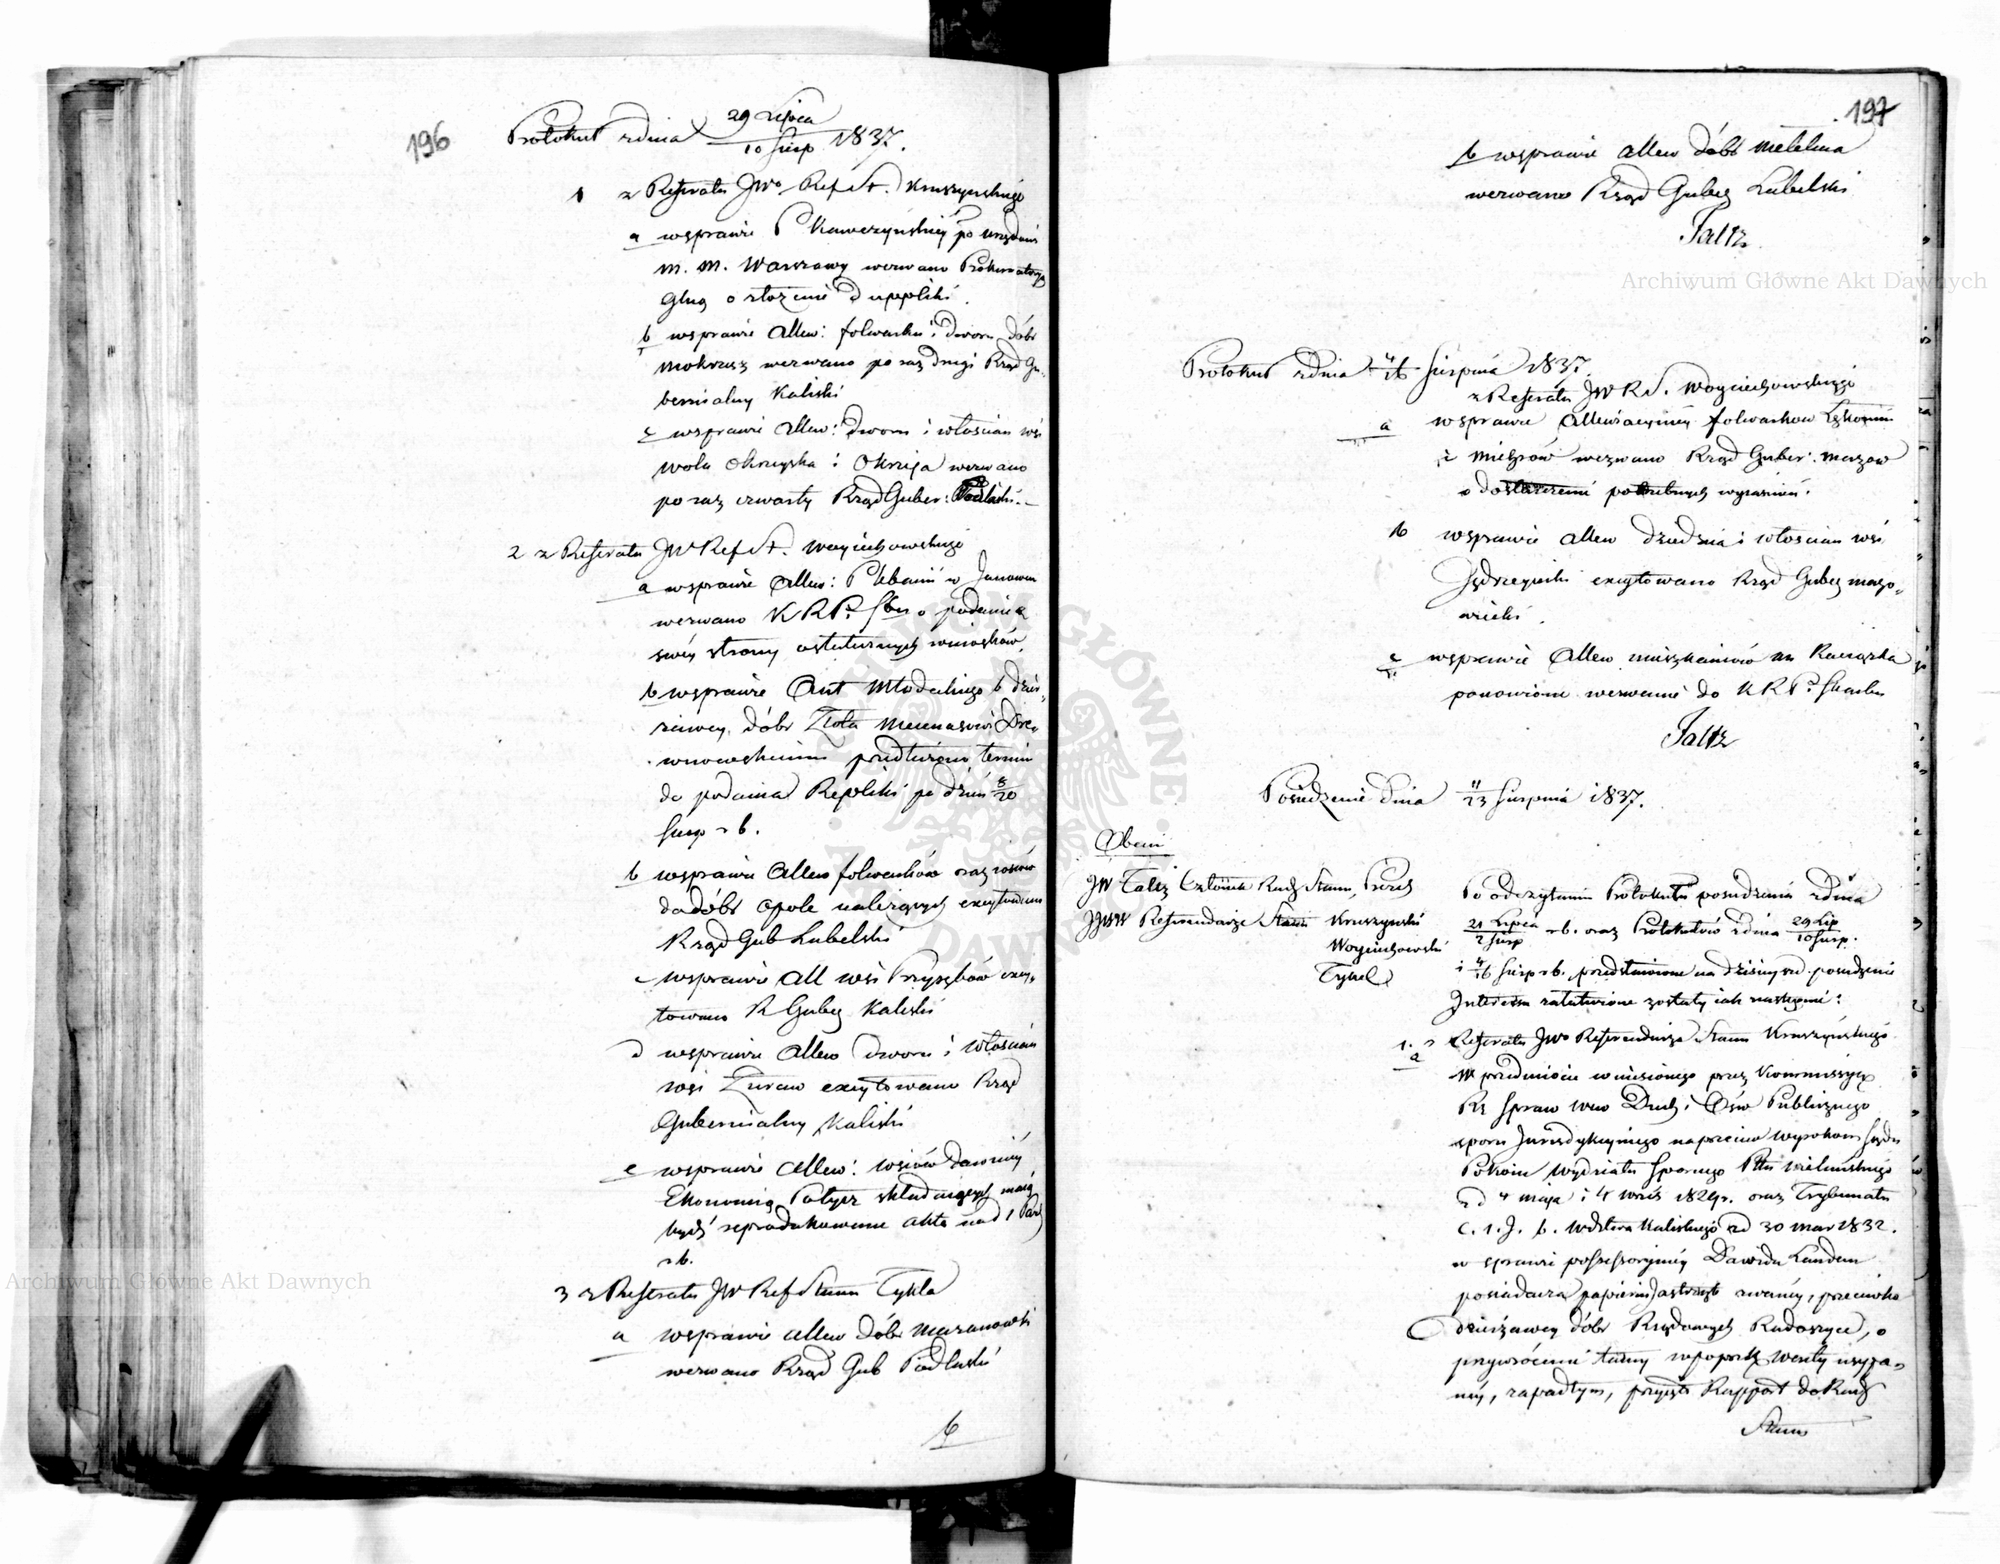 196
Protokuł z dnia 29 Lipca / 10 Sierp 1837.
1 z Referatu JWo Ref St. Kruszyńskiego
a w sprawie P Kawczyńskiey po urzędnik
m. M. Warszawy wezwano Prokuratoryą
Glną o złożenie Dupplik.
b w sprawie allew: folwarku i dworu dóbr
Mokrsz wezwano po raz drugi Rząd Gu-
bernialny Kaliski
c w sprawie allew: dworu i włościan wsi
Wola Okrzyska i Okrzeja wezwano
po raz czwarty Rząd Guber: Podlaski.
2 z Referatu JW Ref St. Woyciechowskiego
a w sprawie Allew: Plebanii w Janowcu
wezwano KRP. Sbu o podanie z
swéy strony ostatecznych wniosków.
b w sprawie Ant Młockiego b dzier-
żawcy dóbr Złota
przedłużono termin
do podania Repliki po dzień 8/20
Sierp r b.
b w sprawie Allew folwarków oraz wsiów
do dóbr Opole należących excytowano
Rząd Gub Lubelski
c w sprawie All wsi Przysębów excy-
towano R Guber Kaliski
d w sprawie Allew dworu i włościan
wsi Żuraw excytowano Rząd
Gubernialny Kaliski
e w sprawie Allew: wsiów dawniéy
Ekonomią Połyez składaiących maią
bydź reprodukowane akta nad 1 Paźd
r b.
3 z Referatu JW Ref Stanu Tykla
a w sprawie allew dóbr Mazanowki
wezwano Rząd Gub Podlaski
b
197
b w sprawie allew dóbr Mełełna
wezwano Rząd Guber Lubelski
Faltz
Protokuł z dnia 4/16 Sierpnia 1837.
z Referatu JW R S. Woyciechowskiego
a w sprawie Allewiacyiney folwarkow
i Mielzrów wezwano Rząd Guber: Mazow
o dostarczenie potrzebnych wyjaśnień.
b w sprawie allew dziedzica i włościan wsi
Jędrzeynik excytowano Rząd Guber Mazo-
wiecki
c w sprawie Allew mieszkańców m Raciąża
ponowione wezwanie do KRP. Skarbu
Faltz
Posiedzenie dnia 11/23 Sierpnia 1837.
Obecni
JW Faltz Członek Rady Stanu, Prezes
JJWW Referendarze Stanu Kruszyński
Woyciechowski
Tykel
Po odczytaniu Protokułu posiedzenia z dnia
21 Lipca / 2 Sierp r b. oraz Protokułów z dnia 29 Lip / 10 Sierp.
i 4/16 Sierp r b. przedstawione na dzisieysze posiedzenie
Interessa załatwione zostały iak następuie:
1. z Referatu JWo Referendarza Stanu Kruszyńskiego
a
W przedmiocie wniesionego przez Kommissyą
Rz Spraw Wew Duch i Ośw Publicznego
sporu Jurisdykcyinego naprzeciw wyrokom Sądu
Pokoiu Wydziału Spornego Pttu Wieluńskiego
z d 4 Maja i 4 Wrześ 1829r. oraz Trybunału
C. 1. J. b. Wdztwa Kaliskiego z d 30 Mar 1832.
w sprawie possessoryiney Dawida Landau
posiadacza papierni Jastrzęb zwaney, przeciwko
dzierżawcy dóbr Rządowych Radoszyce, o
przywrócenie tamy w poprzek
ney, zapadłym, przyięto Rapport do Rady
Stanu
Archiwum Główne Akt Dawnych
Archiwum Główne Akt Dawnych